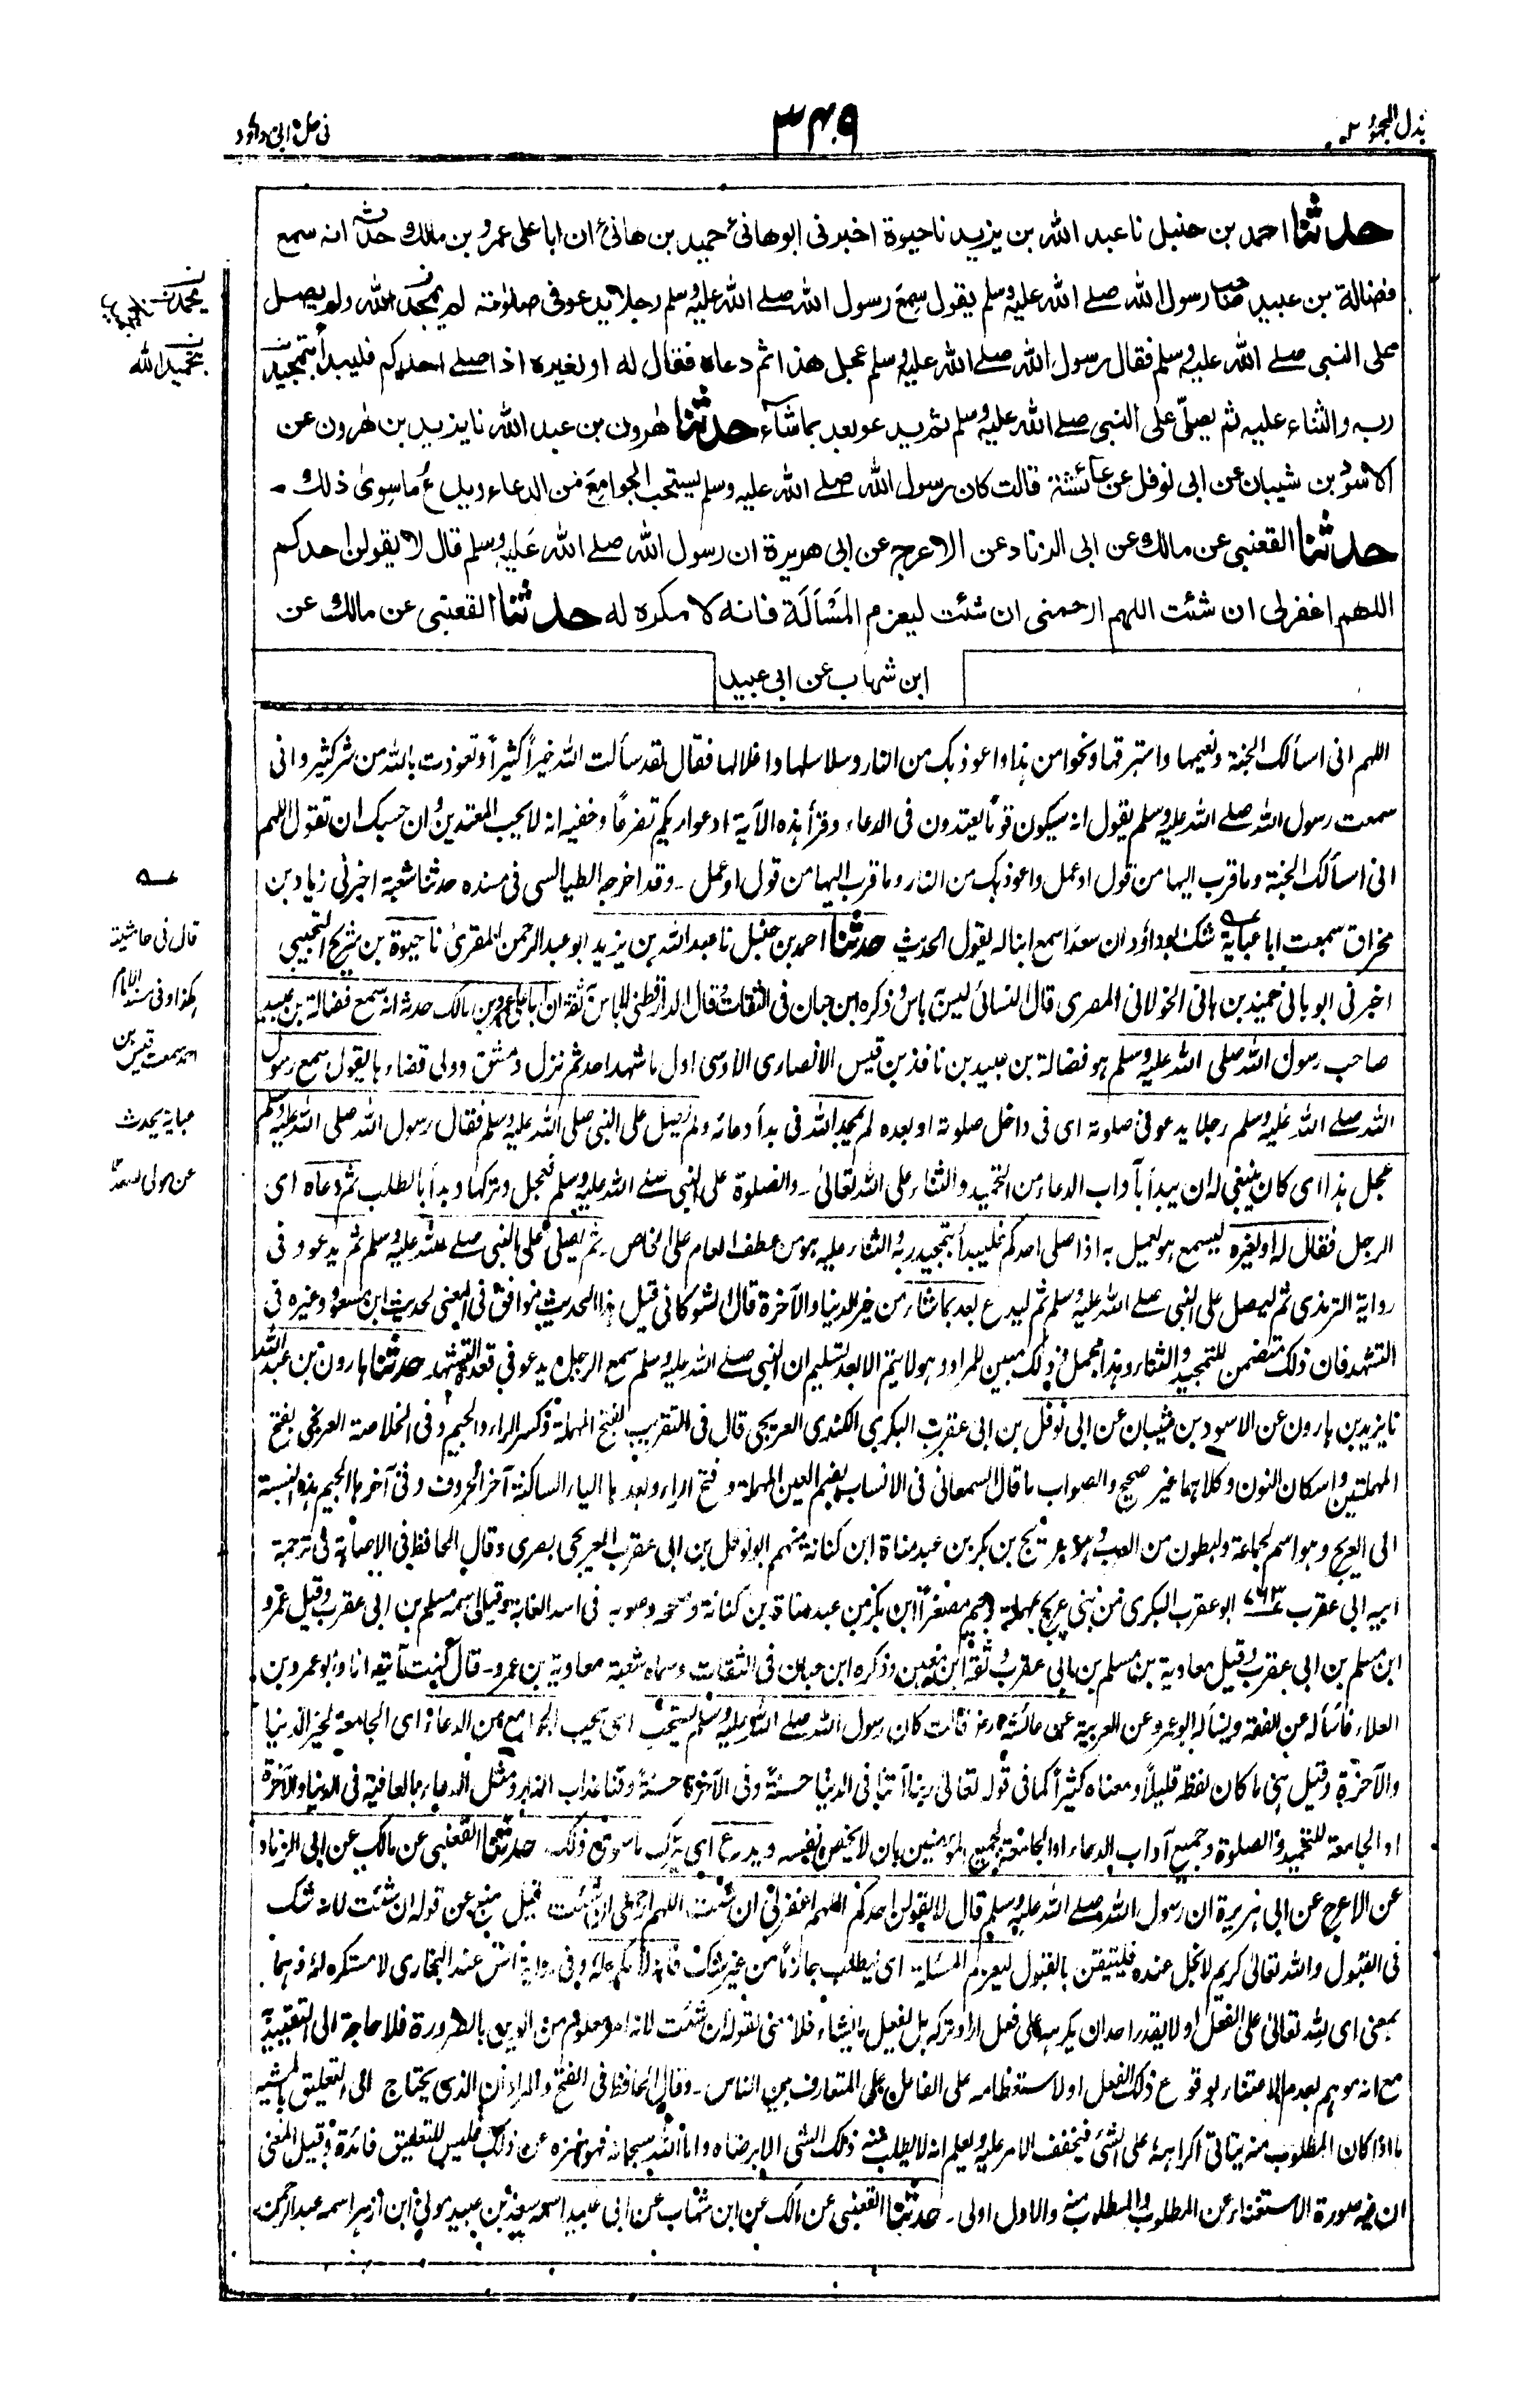 بذل المجهود ٢
٣٤٩
فی حل ابی داؤد
حدثنا احمد بن حنبل نا عبد الله بن يزيد نا حيوة اخبرنی ابو هانئ حميد بن هانئ ان ابا علی عمرو بن مالك حدثه انه سمع
فضالة بن عبيد صاحب رسول الله صلے الله عليه وسلم يقول سمع رسول الله صلے الله عليه وسلم رجلا يدعو فی صلوٰته لم يمجد الله ولم يصل
علی النبی صلے الله عليه وسلم فقال رسول الله صلے الله عليه وسلم عجل هذا ثم دعاه فقال له او لغيره اذا صلے احدكم فليبدأ بتمجيد
ربه والثناء عليه ثم يصلّی علی النبی صلے الله عليه وسلم ثم يدعو بعد بما شآء حدثنا هٰرون بن عبد الله نا يزيد بن هٰرون عن
الاسود بن شيبان عن ابی نوفل عن عائشة قالت كان رسول الله صلے الله عليه وسلم يستحب الجوامع من الدعاء ويدع ما سوی ذلك ـ
حدثنا القعنبی عن مالك عن ابی الزناد عن الاعرج عن ابی هريرة ان رسول الله صلے الله عليه وسلم قال لا يقولن احدكم
اللهم اغفر لی ان شئت اللهم ارحمنی ان شئت ليعزم المسألة فانه لا مكره له حدثنا القعنبی عن مالك عن
ابن شهاب عن ابی عبيد
اللهم انی اسألك الجنة ونعيمها واستبرقها ونحوا من هذا واعوذ بك من النار وسلاسلها واغلالها فقال لقد سألت الله خيراً كثيراً وتعوذت بالله من شر كثير وانی
سمعت رسول الله صلے الله عليه وسلم يقول انه سيكون قوم يعتدون فی الدعاء وقرأ هذه الآية ادعوا ربكم تضرعاً وخفيه انه لا يحب المعتدين وان حسبك ان تقول اللهم
انی اسألك الجنة وما قرب اليها من قول او عمل واعوذ بك من النار وما قرب اليها من قول او عمل ۔ وقد اخرجه الطيالسی فی مسنده حدثنا شعبة اخبرنی زياد بن
مخراق سمعت ابا عباية شك ابو داؤد ان سعدا سمع ابنا له يقول الحديث حدثنا احمد بن حنبل نا عبد الله بن يزيد ابو عبد الرحمن المقرئ نا حيوة بن شريح التجيبی
اخبرنی ابو هانی حميد بن هانی الخولانی المصری قال النسائی ليس به باس وذكره ابن حبان فی الثقات وقال الدارقطنی لا باس به ثقة ان ابا علی عمرو بن مالك حدثه انه سمع فضالة بن عبيد
صاحب رسول الله صلی الله عليه وسلم هو فضالة بن عبيد بن نافذ بن قيس الانصاری الاوسی اول ما شهد احد ثم نزل دمشق وولی قضاءها يقول سمع رسول
الله صلے الله عليه وسلم رجلا يدعو فی صلوته ای فی داخل صلوته او بعده لم يمجد الله فی بدأ دعائه ولم يصل علی النبی صلی الله عليه وسلم فقال رسول الله صلی الله عليه وسلم
عجل هذا ای كان ينبغی له ان يبدأ بآداب الدعاء من التحميد والثناء علی الله تعالیٰ ۔ والصلوة علی النبی صلے الله عليه وسلم فعجل وتركها وبدأ بالطلب ثم دعاه ای
الرجل فقال له او لغيره ليسمع هو ليعمل به اذا صلی احدكم فليبدأ بتمجيد ربه والثناء عليه هو من عطف العام علی الخاص ۔ ثم يصلی علی النبی صلے الله عليه وسلم ثم يدعو وفی
رواية الترمذی ثم ليصل علی النبی صلے الله عليه وسلم ثم ليدع بعد بما شاء من خير الدنيا والآخرة قال الشوكانی قيل هذا الحديث موافق فی المعنی لحديث ابن مسعود وغيره فی
التشهد فان ذلك متضمن للتمجيد والثناء وهذا مجمل وذلك مبين للمراد وهو لا يتم الا بعد تسليم ان النبی صلے الله عليه وسلم سمع الرجل يدعو فی قعدة التشهد حدثنا هارون بن عبد الله
نا يزيد بن هارون عن الاسود بن شيبان عن ابی نوفل بن ابی عقرب البكری الكندی العريجی قال فی التقريب بفتح المهملة وكسر الراء والجيم وفی الخلاصة العرنجی بفتح
المهملتين واسكان النون وكلاهما غير صحيح والصواب ما قال السمعانی فی الانساب بضم العين المهملة وفتح الراء وبعدها الياء الساكنة آخر الحروف وفی آخرها الجيم هذه النسبة
الی العريج وهو اسم لجماعة ولبطون من العرب وهو عريج بن بكر بن عبد مناة ابن كنانة منهم ابو نوفل بن ابی عقرب العريجی بصری وقال الحافظ فی الاصابة فی ترجمة
ابيه ابی عقرب ٧٦٣ ابو عقرب البكری من بنی عريج بمهملة وجيم مصغراً ابن بكر بن عبد مناة بن كنانة وصححه وصوبه فی اسد الغابة وقيل اسمه مسلم بن ابی عقرب وقيل عمرو
ابن مسلم بن ابی عقرب وقيل معاوية بن مسلم بن ابی عقرب وثقه ابن معين وذكره ابن حبان فی الثقات وسماه شعبة معاوية بن عمرو ۔ قال كنت آتيه انا وابو عمرو بن
العلاء فأسأله عن الفقه ويسأله ابو عمرو عن العربية عن عائشة رض قالت كان رسول الله صلے الله عليه وسلم يستحب ای يحب الجوامع من الدعاء ای الجامعة لخير الدنيا
والآخرة وقيل هی ما كان لفظه قليلاً ومعناه كثيراً كما فی قوله تعالی ربنا آتنا فی الدنيا حسنة وفی الآخرة حسنة وقنا عذاب النار ومثل الدعاء بالعافية فی الدنيا والآخرة
او الجامعة للتحميد والصلوة وجميع آداب الدعاء او الجامعة لجميع المؤمنين بان لا يخص نفسه ويدع ای يترك ما سوی ذلك ۔ حدثنا القعنبی عن مالك عن ابی الزناد
عن الاعرج عن ابی هريرة ان رسول الله صلے الله عليه وسلم قال لا يقولن احدكم اللهم اغفر لی ان شئت اللهم ارحمنی ان شئت قيل منع عن قوله ان شئت لانه شك
فی القبول والله تعالی كريم لا بخل عنده فليتيقن بالقبول ليعزم المسئلة ای ليطلب جازماً من غير شك فانه لا مكره له وفی رواية انس عند البخاری لا مستكره له وهما
بمعنی ای لله تعالی علی الفعل او لا يقدر احد ان يكرهه علی فعل اراد تركه بل يفعل ما يشاء فلا معنی لقوله ان شئت لانه امر معلوم من الدين بالضرورة فلا حاجة الی التقييد به
مع انه موهم لعدم الاعتناء بوقوع ذلك الفعل او لاستعظامه علی الفاعل علی المتعارف بين الناس ۔ وقال الحافظ فی الفتح والمراد ان الذی يحتاج الی التعليق بالمشيه
ما اذا كان المطلوب منه يتاتی اكراهه علی الشئ فيخفف الامر عليه ويعلم انه لا يطلب منه ذلك الشئ الا برضاه واما الله سبحانه فهو منزه عن ذلك فليس للتعليق فائدة وقيل المعنی
ان فيه صورة الاستغناء عن المطلوب والمطلوب منه والاول اولی ۔ حدثنا القعنبی عن مالك عن ابن شهاب عن ابی عبيد اسمه سعد بن عبيد مولی ابن ازهر اسمه عبد الرحمن
بتحميد الله
عــه
قال فی حاشية
هكذا وفی مسند الامام
احمد سمعت قيس بن
عباية يحدث
عن مولی لسعد